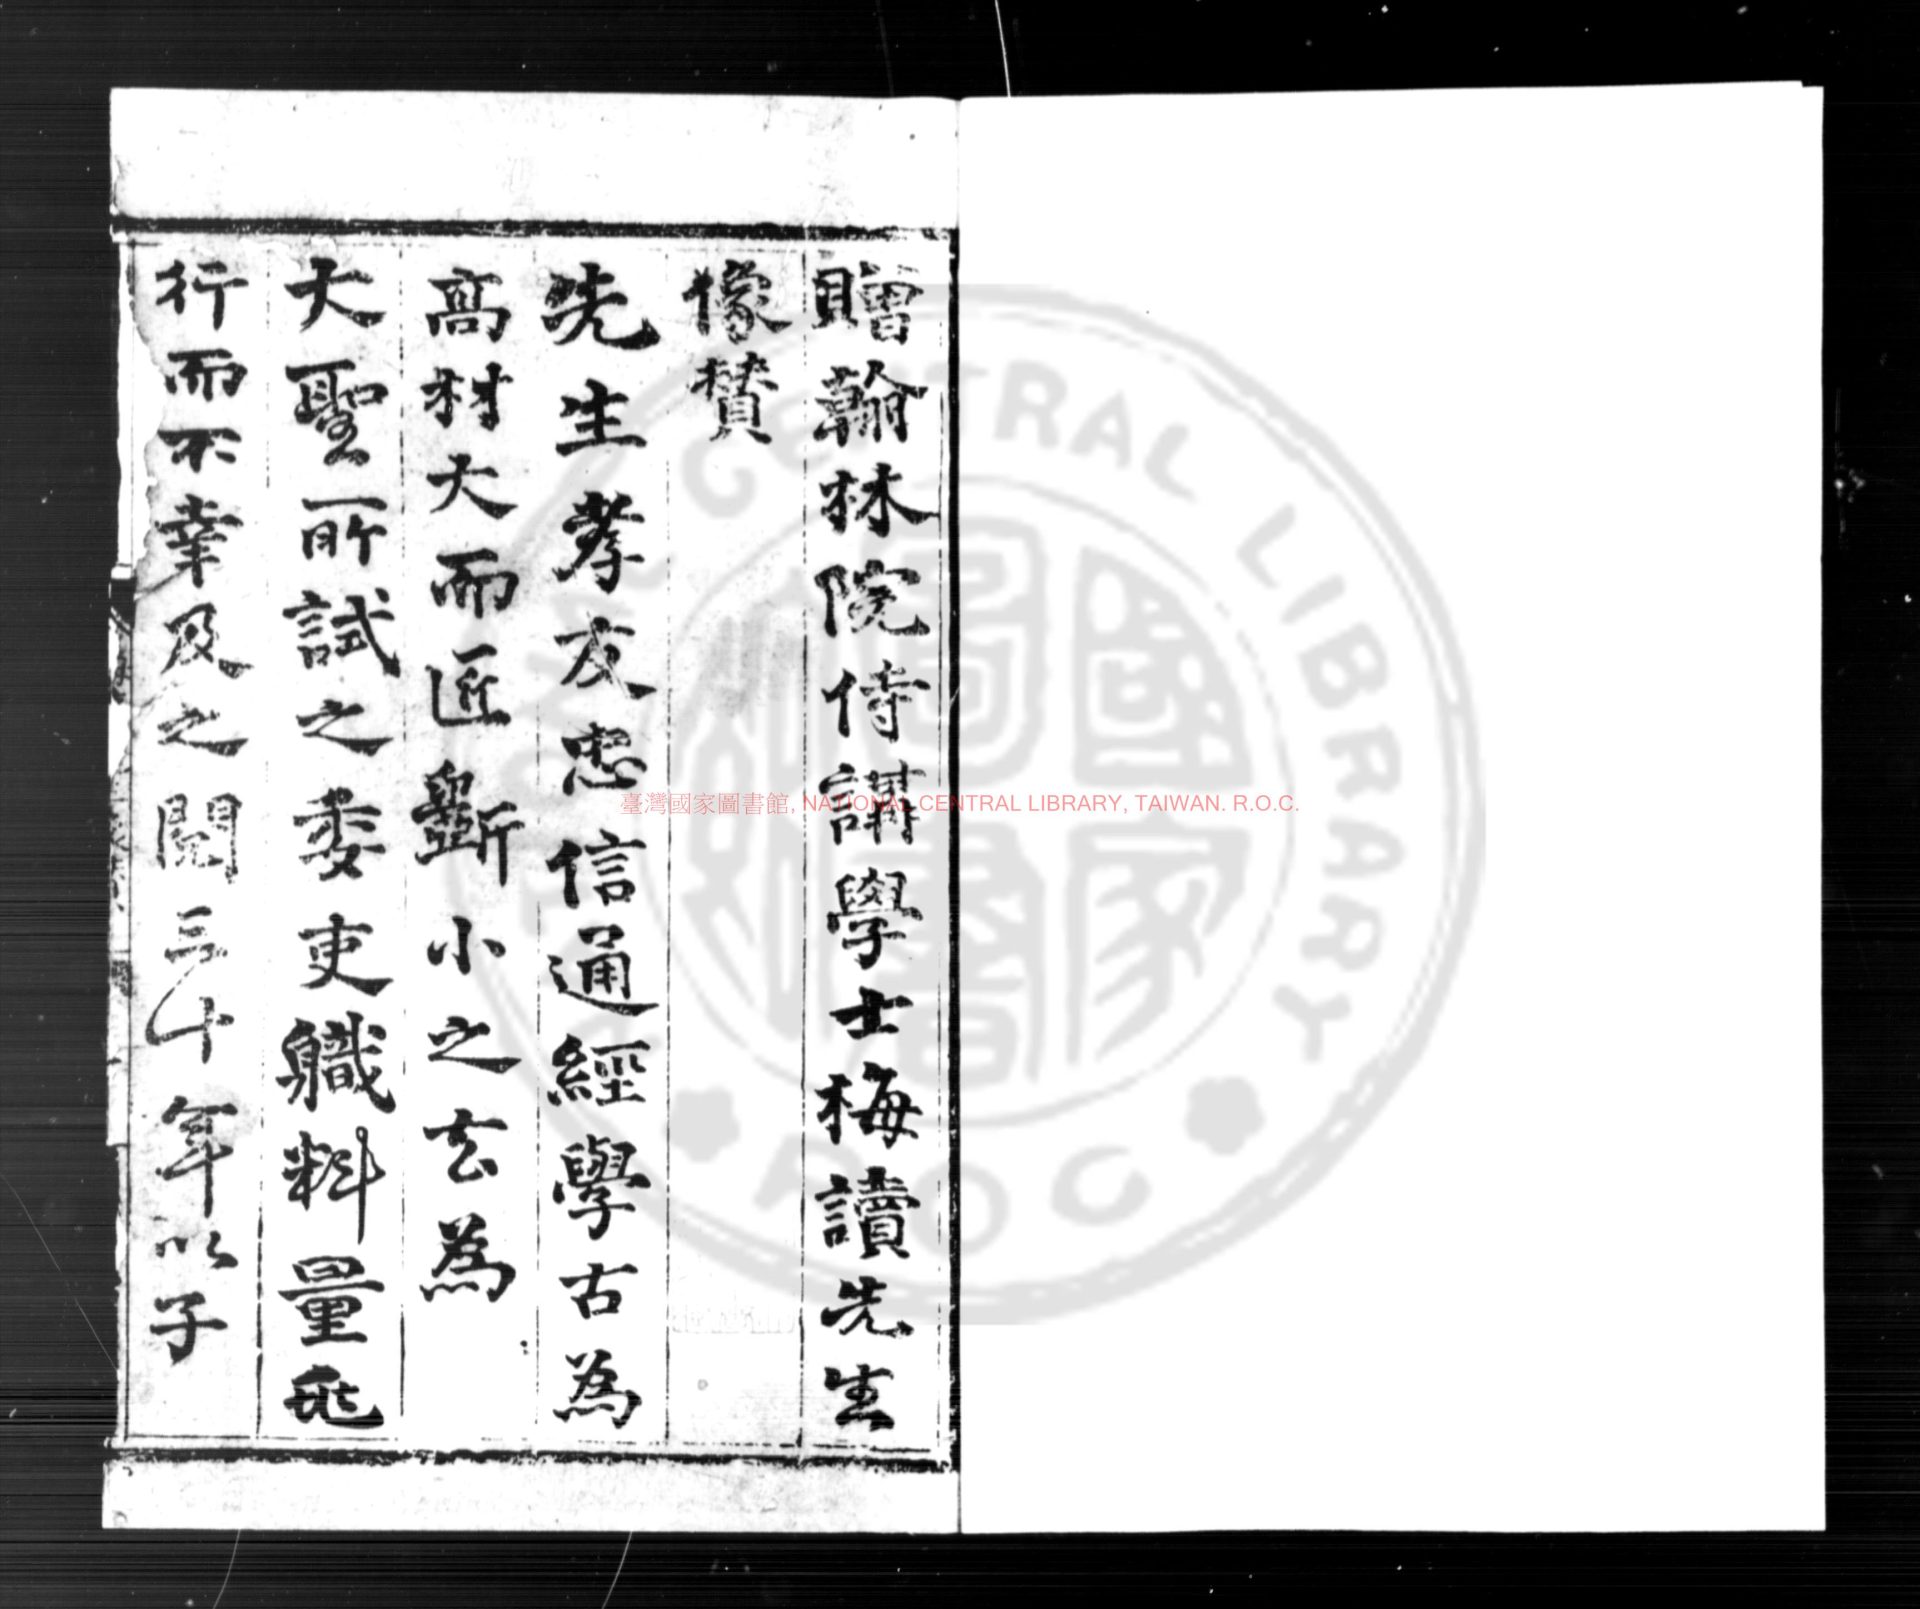 贈翰林院侍講學士梅讀先生
像贊
先生孝友忠信通經學古為
高材大而匠斲小之玄為
大聖所試之委吏職料量
行而不幸及之閱三十年以子
臺灣國家圖書館, NATIONAL CENTRAL LIBRARY, TAIWAN. R.O.C.